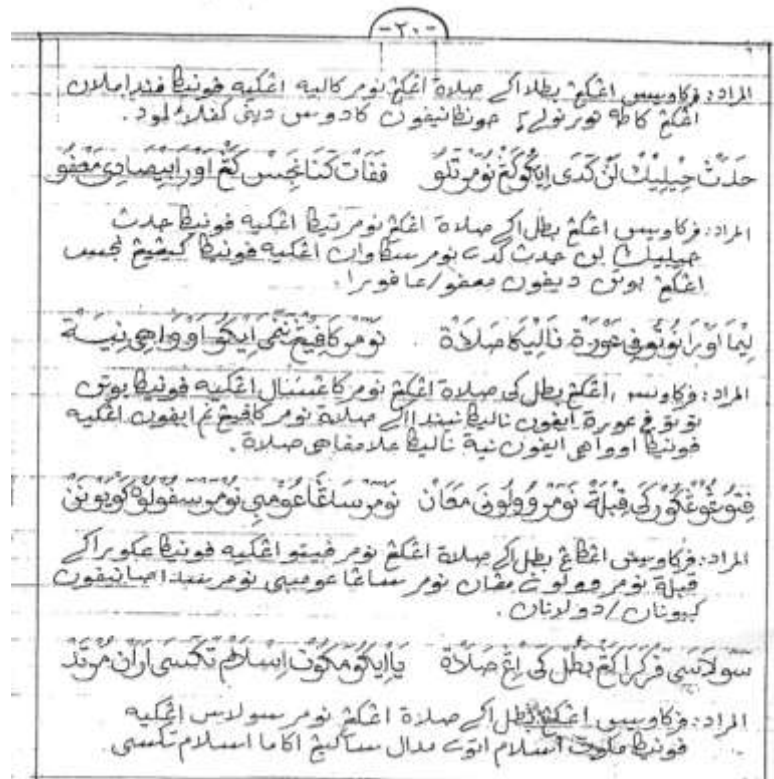 -٢٠-
المراد: فركاويس اڠكڠ بطلاكے صلاة اڠكڠ نومر كاليه اڠڮيه فونيكا
اڠكڠ كاطه
حَدَثْ چِيلِيْكْ لَنْ ڮَدَى اِيْكُو كَڠْ نُوْمَرْ تَلُوْ فَفَاتْ كَنَا نَجِسْ كَڠْ اَوْرَا دِيْ مَعْفُوْ
المراد: فركاويس اڠكڠ بطلاكے صلاة اڠكڠ نومر تيڮا اڠڮيه فونيكا حدث
چيليك لن حدث ڮدے نومر سكاوان اڠڮيه فونيكا كيڠيڠ نجس
اڠكڠ بوتن ديفون معفو / عافورا.
لِيْمَا اَوْرَا نُوْتُوْفِيْ عَوْرَةْ نَالِيْكَا صَلَاةْ نُوْمَرْ كَافِيْڠْ نَمْ اِيْكُوْ اَوْوَاهِيْ نِيَةْ
المراد: فركاويس، اڠكڠ بطلكى صلاة اڠكڠ نومر كاڠسال اڠڮيه فونيكا بوتن
نوتوفى عورة ايفون ناليكا نيندااكے صلاة نومر كافيڠ نم ايفون اڠڮيه
فونيكا اوواهى ايفون نية ناليكا علامفاهى صلاة.
فِتُوْ عُڠْكُوْرَكَى قِبْلَةْ نُوْمَرْ وُوْلُوْنَى مَڠَانْ نُوْمَرْ سَاڠَا عَوْمْبَيْ نُوْمَرْ سَفُوْلُوْهْ ڮُوْيُوْنَنْ
المراد: فركاويس اڠكڠ بطلاكے صلاة اڠكڠ نومر فيتو اڠڮيه فونيكا عكوراكے
قبلة نومر وولونے مڠان نومر ساڠا عومبى نومر سداصانيفون
ڮيونان / دولانان.
سَوْلَاسَى فَرْكَرَا كَڠْ بَطَلْكَى اِڠْ صَلَاةْ يَااِيْكُوْ مَڮُوْتْ اِسْلَامْ تَڮْسَى اَرَانْ مُرْتَدْ
المراد: فركاويس اڠكڠ بطلاكے صلاة اڠكڠ نومر سولاس اڠڮيه
فونيكا مڮوت اسلام اتوے مدال ساكيڠ اڮاما اسلام تڮسى